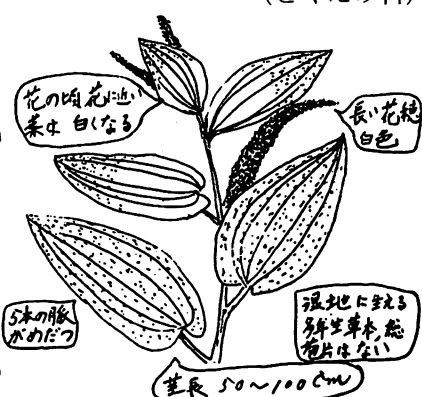 花の頃、花に近い
葉は 白くなる
長い花穂
白色
5本の脈
がめだつ
湿地に生える
多年生草本、総
苞片はない
茎長 50〜100cm